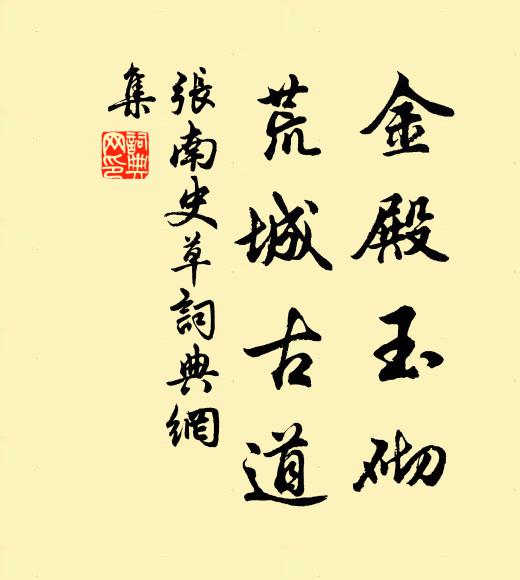 金殿玉砌
荒城古道
張南史草詞典網
集
詞典
网印